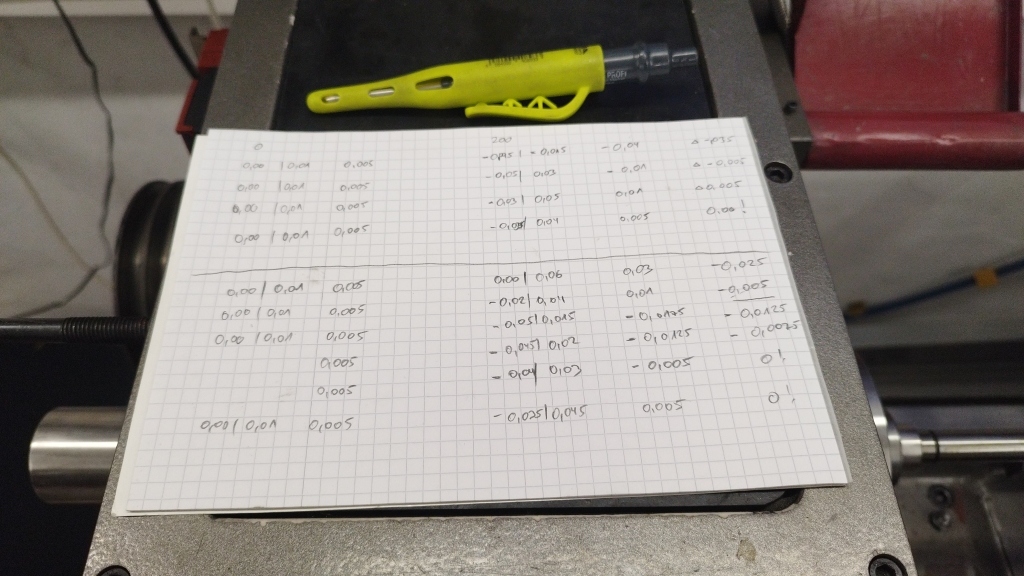 PROFI
0 200
0,00 | 0,01 0,005 -0,015 - 0,04
0,00 | 0,01 0,005 -0,05 | 0,03 -0,01 Δ -0,005
0,00 | 0,01 0,005 -0,03 | 0,05 0,01 Δ 0,005
0,00 | 0,01 0,005 0,04 0,005 0,00!
0,00 | 0,01 0,005 0,00 | 0,06 0,03 -0,025
0,00 | 0,01 0,005 -0,02 | 0,04 0,01 -0,005
0,00 | 0,01 0,005 -0,05 | 0,015 -0,0125
0,005 -0,045 | 0,02 -0,0125 -0,0075
0,005 -0,04 | 0,03 -0,005 0!
0,00 | 0,01 0,005 -0,025 | 0,045 0,005 0!